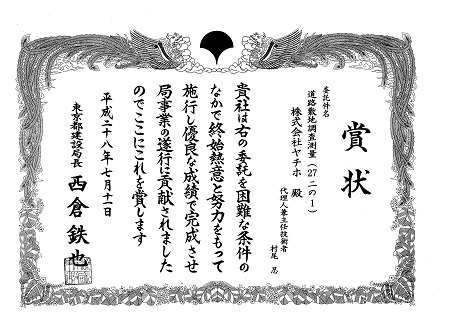 賞状
委託件名
道路敷地調査測量（27二の1）
株式会社ヤチホ 殿
代理人兼主任技術者
村尾 忍
貴社は右の委託を困難な条件の
なかで終始熱意と努力をもって
施行し優良な成績で完成させ
局事業の遂行に貢献されました
のでここにこれを賞します
平成二十八年七月十一日
東京都建設局長 西倉鉄也